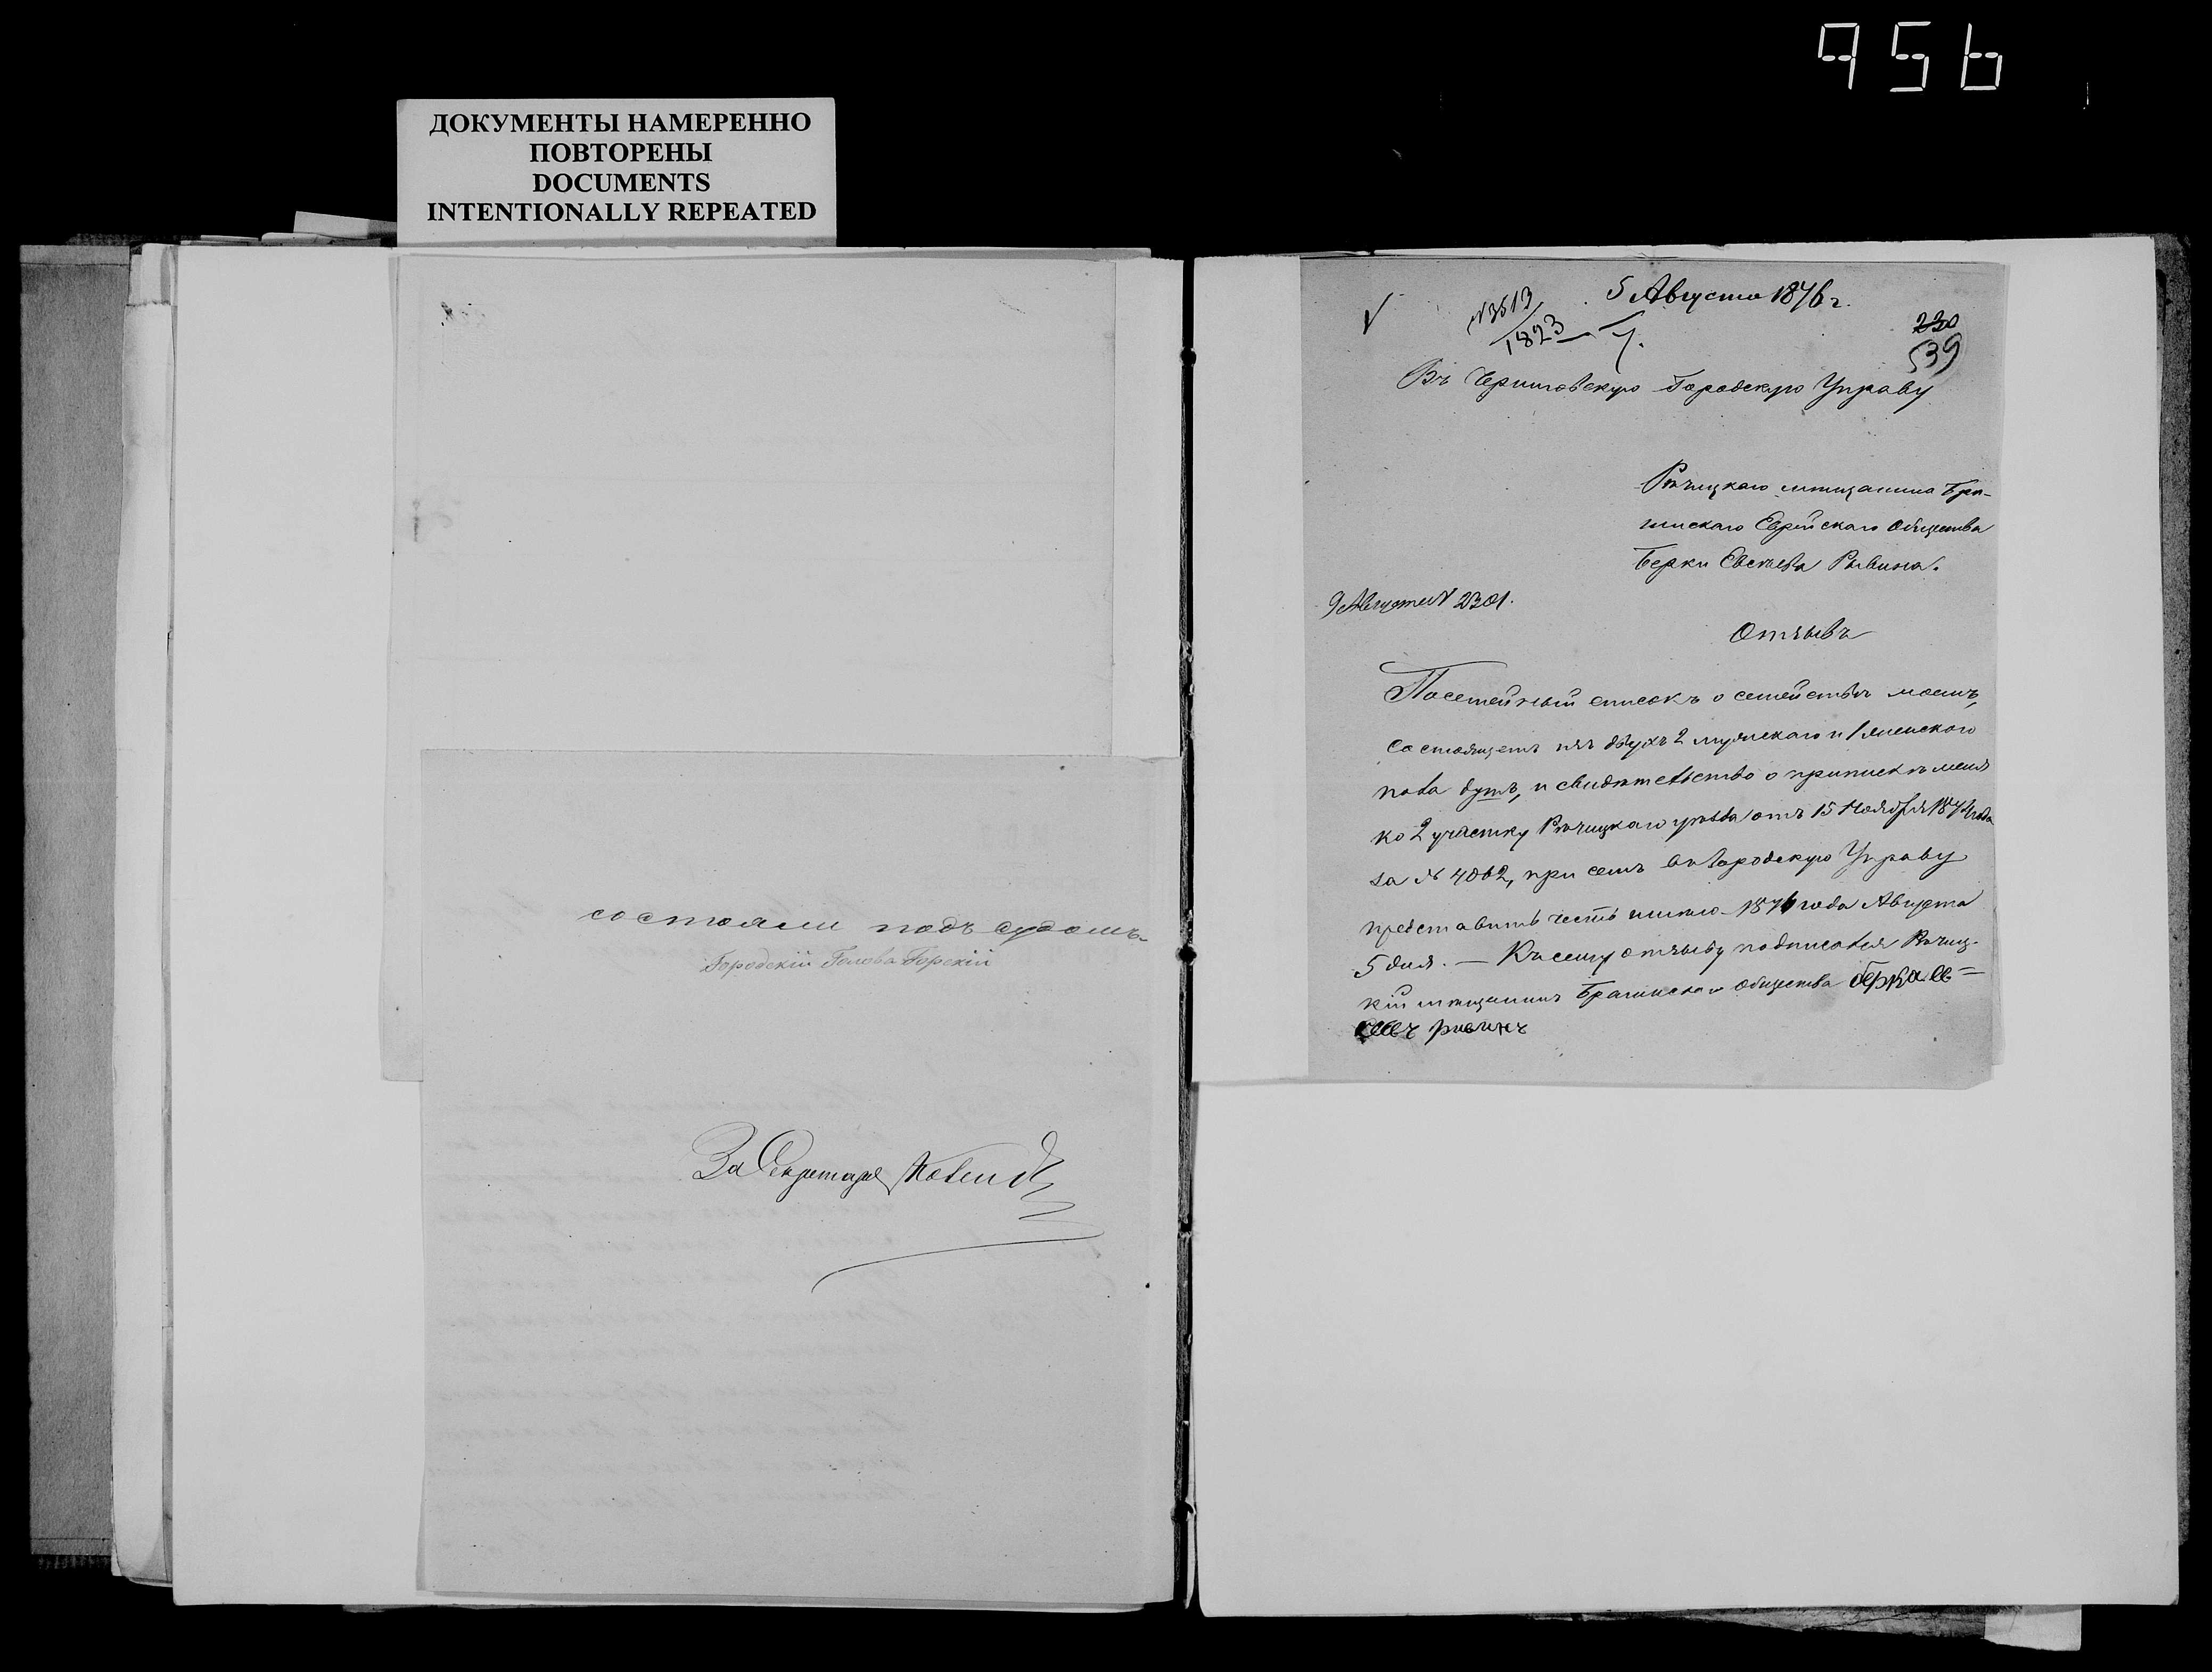 956
ДОКУМЕНТЫ НАМЕРЕННО
ПОВТОРЕНЫ
DOCUMENTS
INTENTIONALLY REPEATED
состояли подъ судомъ.
Городскій Голова Горскій
За Секретаря
5 Августа 1876 г.
№ 3513
1823
230
539
Въ Черниговскую Городскую Управу
Рѣчицкаго мѣщанина Бра-
гинскаго Еврейскаго Общества
Берки Евсѣева Рывина.
9 Августа № 2301.
Отзывъ
Посемейный списокъ о семействѣ моемъ,
состоящемъ изъ двухъ 2 мужскаго и 1 женскаго
пола душъ, и свидѣтельство о припискѣ меня
ко 2 участку Рѣчицкаго уѣзда отъ 15 Ноября 1874 года
за № 4062, при семъ въ Городскую Управу
представить честь имѣю 1876 года Августа
5 дня. — Къ сему отзыву подписался Рѣчиц-
кій мѣщанинъ Брагинскаго общества берка ев=
сеевъ ривинъ